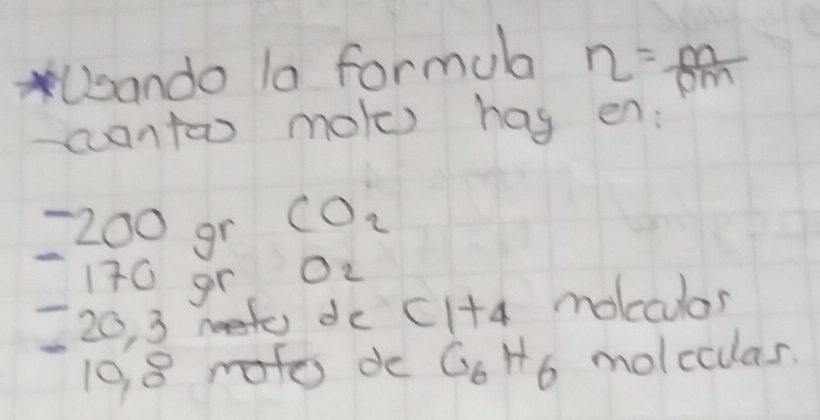 *Usando la formula n = m/pm
-cuantas moles hay en:
-200 gr CO2
-170 gr O2
-20,3 moles de CH4 moleculas
-10,8 moles de C6H6 moleculas.